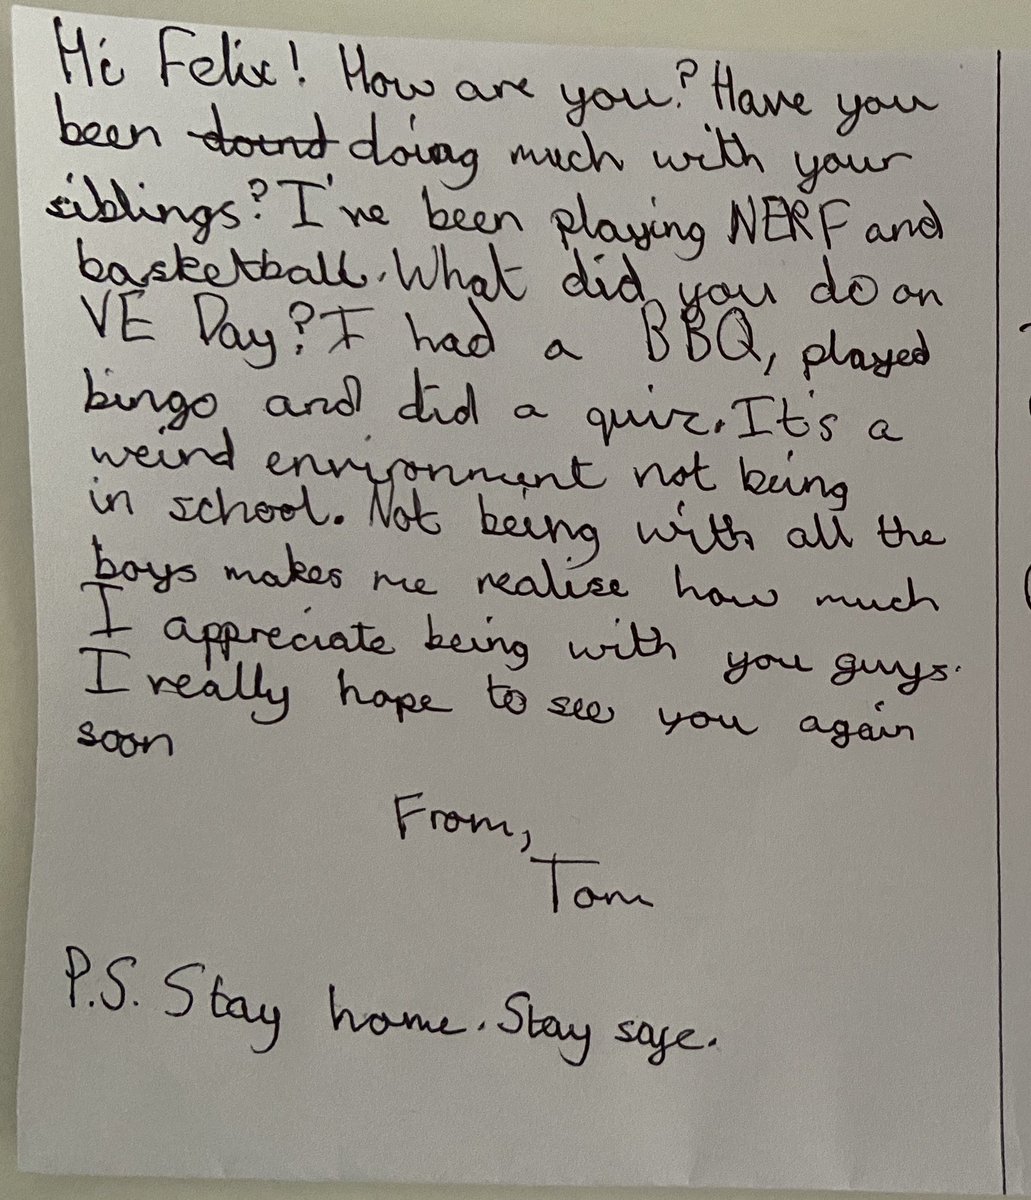 Hi Felix! How are you? Have you
been doind doing much with your
siblings? I've been playing NERF and
basketball. What did you do on
VE Day? I had a BBQ, played
bingo and did a quiz. It's a
weird environment not being
in school. Not being with all the
boys makes me realise how much
I appreciate being with you guys.
I really hope to see you again
soon
From,
Tom
P.S. Stay home. Stay safe.